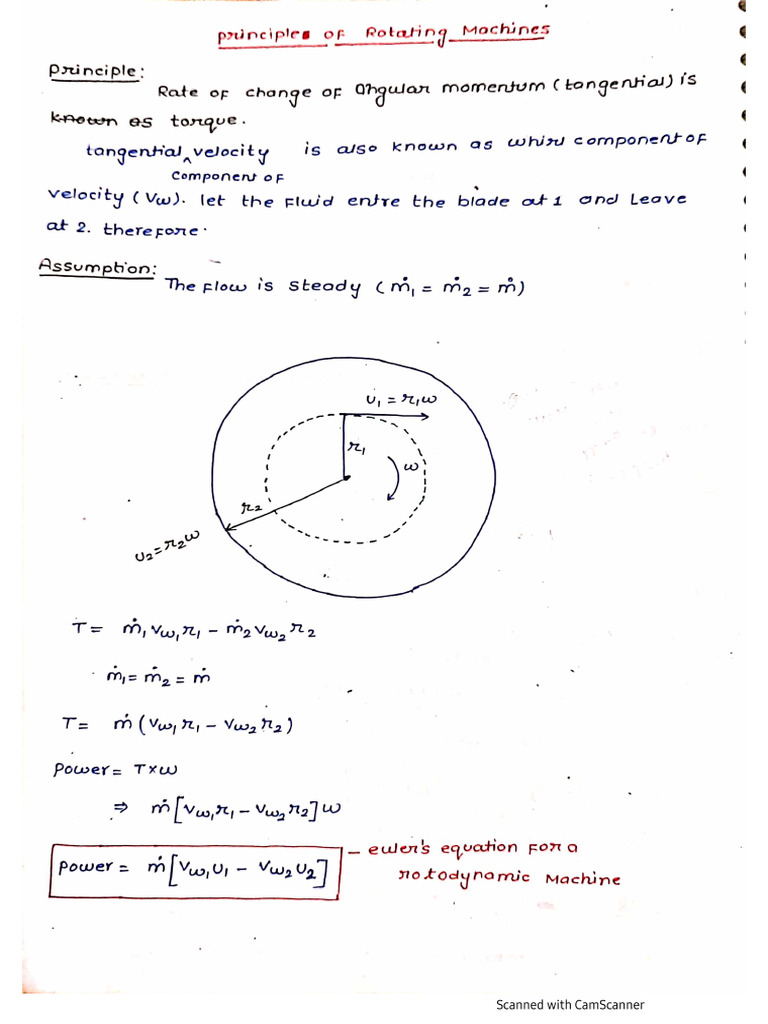 principles of Rotating Machines
Principle:
Rate of change of Angular momentum (tangential) is
known as torque.
tangential ^ velocity is also known as whirl component of
component of
velocity (Vw). let the fluid entre the blade at 1 and leave
at 2. therefore.
Assumption:
The flow is steady (ṁ₁ = ṁ₂ = ṁ)
U₁ = r₁ω
r₁
ω
r₂
U₂ = r₂ω
T = ṁ₁Vw₁r₁ - ṁ₂Vw₂r₂
ṁ₁ = ṁ₂ = ṁ
T = ṁ (Vw₁r₁ - Vw₂r₂)
power = T×ω
⇒ ṁ[Vw₁r₁ - Vw₂r₂]ω
power = ṁ[Vw₁U₁ - Vw₂U₂] – euler's equation for a
rotodynamic Machine
Scanned with CamScanner